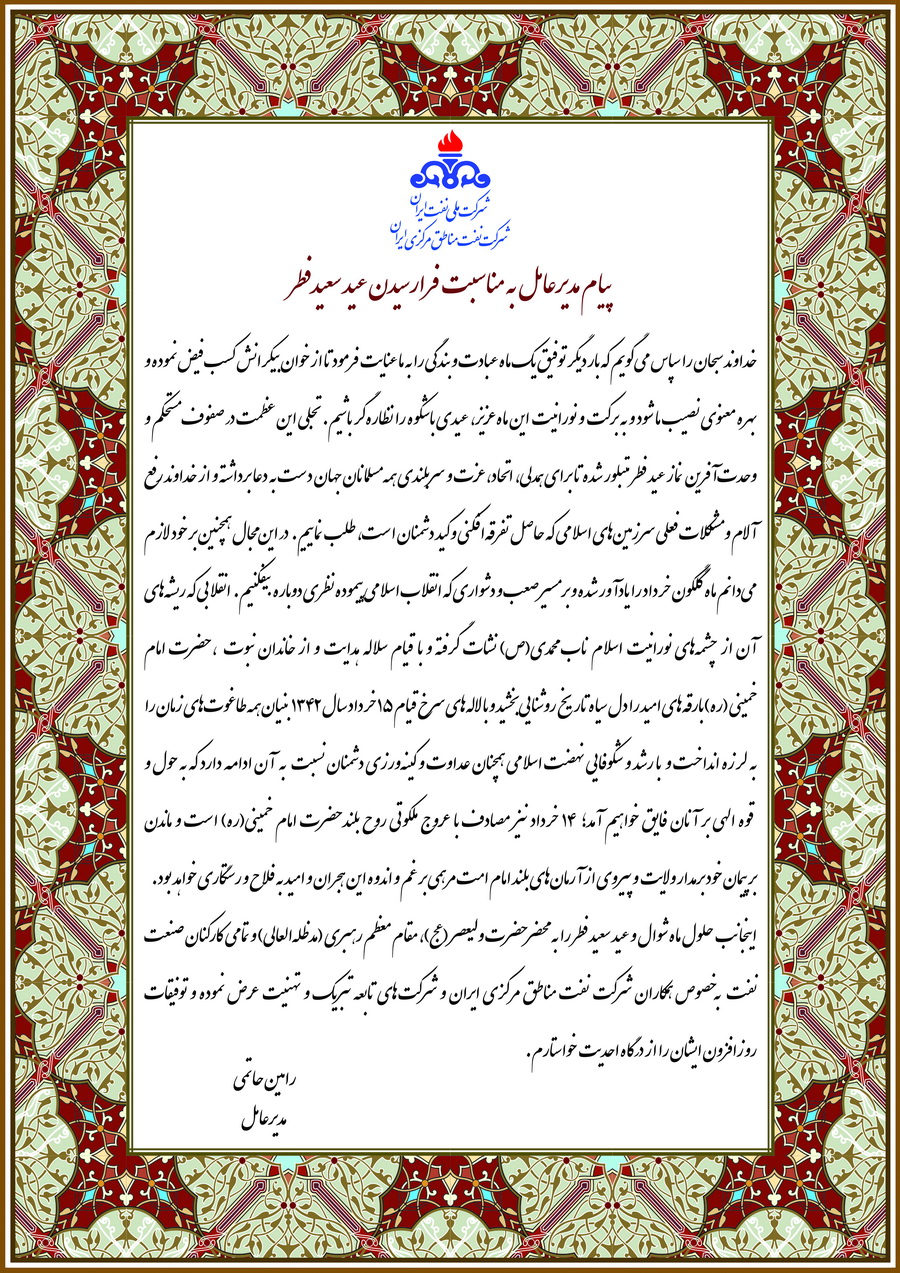 شرکت ملی نفت ایران
شرکت نفت مناطق مرکزی ایران
پیام مدیرعامل به مناسبت فرا رسیدن عید سعید فطر
خداوند سبحان را سپاس می‌گویم که بار دیگر توفیق یک ماه عبادت و بندگی را به ما عنایت فرمود تا از خوان بیکرانش کسب فیض نموده و
بهره معنوی نصیب ما شود و به برکت و نورانیت این ماه عزیز، عیدی باشکوه را نظاره‌گر باشیم. تجلی این عظمت در صفوف مستحکم و
وحدت‌آفرین نماز عید فطر متبلور شده تا برای همدلی، اتحاد، عزت و سربلندی همه مسلمانان جهان دست به دعا برداشته و از خداوند رفع
آلام و مشکلات فعلی سرزمین‌های اسلامی که حاصل تفرقه افکنی و کید دشمنان است، طلب نماییم. در این مجال همچنین بر خود لازم
می‌دانم ماه گلگون خرداد را یادآور شده و بر مسیر صعب و دشواری که انقلاب اسلامی پیموده نظری دوباره بیفکنیم. انقلابی که ریشه‌های
آن از چشمه‌های نورانیت اسلام ناب محمدی(ص) نشات گرفته و با قیام سلاله هدایت و از خاندان نبوت ، حضرت امام
خمینی (ره) بارقه‌های امید را دل سیاه تاریخ روشنایی بخشید و با لاله‌های سرخ قیام ۱۵خرداد سال ۱۳۴۲ بنیان همه طاغوت‌های زمان را
به لرزه انداخت و با رشد و شکوفایی نهضت اسلامی همچنان عداوت و کینه‌ورزی دشمنان نسبت به آن ادامه دارد که به حول و
قوه الهی بر آنان فایق خواهیم آمد؛ ۱۴ خرداد نیز مصادف با عروج ملکوتی روح بلند حضرت امام خمینی(ره) است و ماندن
بر پیمان خود بر مدار ولایت و پیروی از آرمان‌های بلند امام امت مرهمی بر غم و اندوه این هجران و امید به فلاح و رستگاری خواهد بود.
اینجانب حلول ماه شوال و عید سعید فطر را به محضر حضرت ولیعصر(عج)، مقام معظم رهبری (مدظله‌العالی) و تمامی کارکنان صنعت
نفت به‌خصوص همکاران شرکت نفت مناطق مرکزی ایران و شرکت‌های تابعه تبریک و تهنیت عرض نموده و توفیقات
روزافزون ایشان را از درگاه احدیت خواستارم.
رامین حاتمی
مدیرعامل